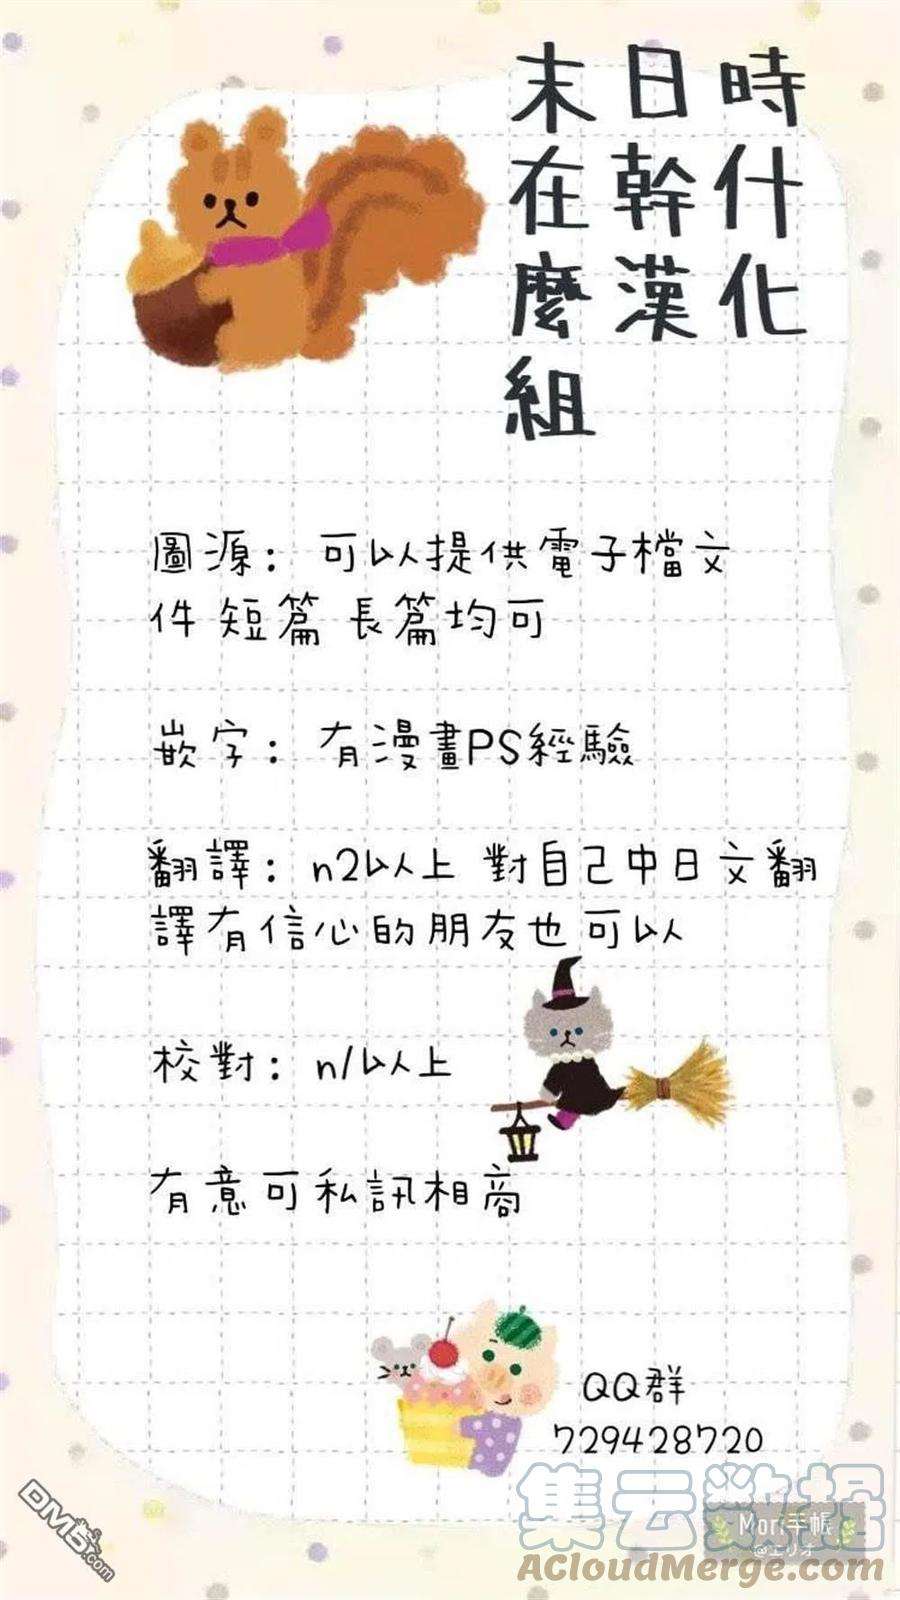 末日時
在幹什
麼漢化
組
圖源：可以提供電子檔文
件 短篇 長篇均可
嵌字：有漫畫PS經驗
翻譯：n2以上 對自己中日文翻
譯有信心的朋友也可以
校對：n1以上
有意可私訊相商
QQ群
729428720
集云数据
Mori手帳
@エリオ
ACloudMerge.com
DM5.com